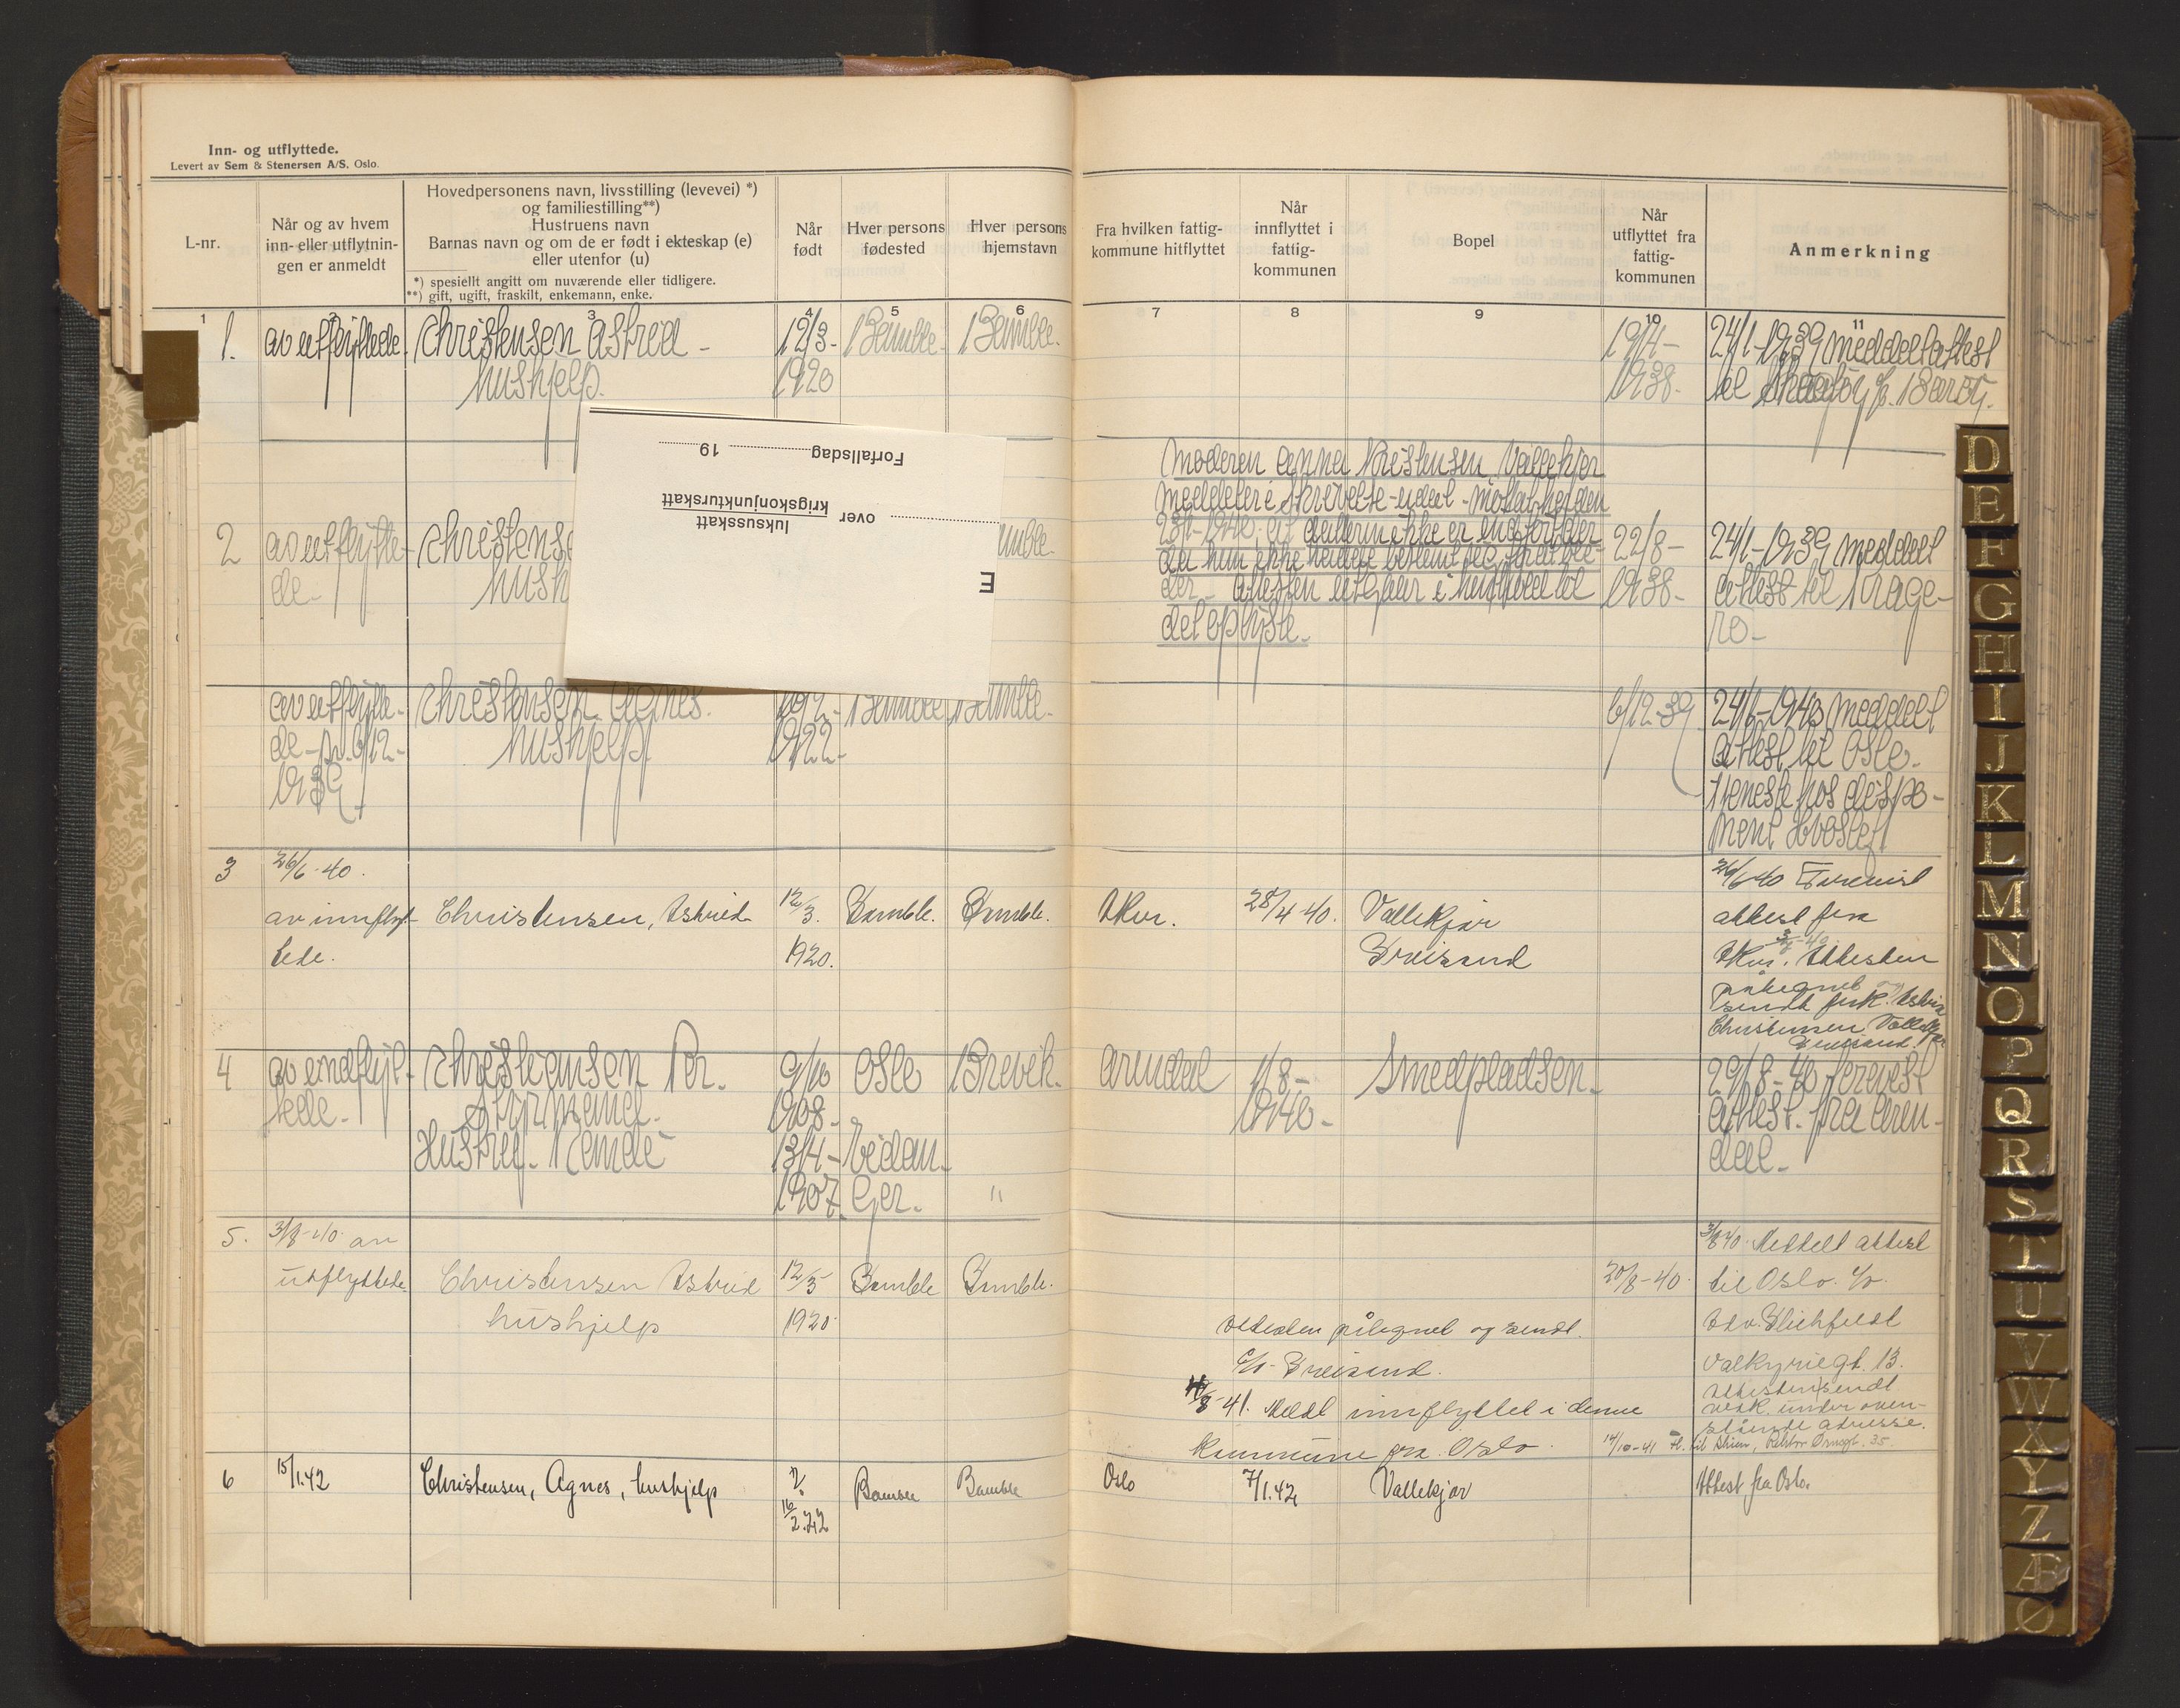 Inn- og utflyttede.
Levert av Sem & Stenersen A/S, Oslo.
L-nr.
Når og av hvem
inn- eller utflytnin-
gen er anmeldt
Hovedpersonens navn, livsstilling (levevei) *)
og familiestilling**)
Hustruens navn
Barnas navn og om de er født i ekteskap (e)
eller utenfor (u)
*) spesiellt angitt om nuværende eller tidligere.
**) gift, ugift, fraskilt, enkemann, enke.
Når
født
Hver persons
fødested
Hver persons
hjemstavn
Fra hvilken fattig-
kommune hitflyttet
Når
innflyttet i
fattig-
kommunen
Bopel
Når
utflyttet fra
fattig-
kommunen
Anmerkning
1 2 3 4 5 6 7 8 9 10 11
1. av utflyttede. Christensen Astrid - 12/3- Bamble. Bamble. 19/4- 24/1-1939 meddelt attest
hushjelp. 1920 1938- til
Forfallsdag 19
over luksusskatt
krigskonjunkturskatt
E
Moderen Anna Kristensen Vallekjær
meddeler i skrivelse
datteren ikke er
da hun ikke
attesten utgaar i henhold til
det oplyste.
2 av utflytte- Christense 22/8- 24/1-1939 meddelt
de- hush 1938- attest til Krage-
rø-
av utflytte- Christensen Agnes. Bamble Bamble. 6/12-39 24/6-1940 meddelt
de- pr. 6/12- hushjelp. 1922- attest til Oslo.
1939 tjeneste hos dispo-
nent
3 26/6-40. 26/6-40 Forevist
av innflyt- Christensen, Astrid 12/3. Bamble. Bamble. 28/4-40. Vallekjær attest fra
tede. 1920. Attesten
påtegnet og
sendt frk. Astrid
Christensen Vallekjær
4 av indflyt- Christiansen Per. 9/10 Oslo Brevik. Arendal 1/8- Smedpladsen. 29/8-40 forevist
tede- Styrmand. 1908- 1940- attest fra Aren-
Hustru- 13/4- Eidan- dal-
1907. ger. "
5. 31/8-40 av 31/8 40. Meddelt attest
utflyttede Christensen Astrid 12/3 Bamble Bamble. 20/8-40. til Oslo. c/o.
hushjelp 1920. Attesten påtegnet og sendt. Adv.
c/o Valkyriegt. 13.
8-41. Meldt innflyttet i denne Attesten sendt
vedk. under oven-
stående adresse.
kommune fra Oslo. 14/10-41 Fl. til Skien, 35.
6 15/1.42 Christensen, Agnes, hushjelp Bamble Bamble Oslo 7/1.42 Vallekjær Attest fra Oslo.
16/2.22
D
E
F
G
H
I
J
K
L
M
N
O
P
Q
R
S
T
U
V
W
X
Y
Z
Æ
Ø